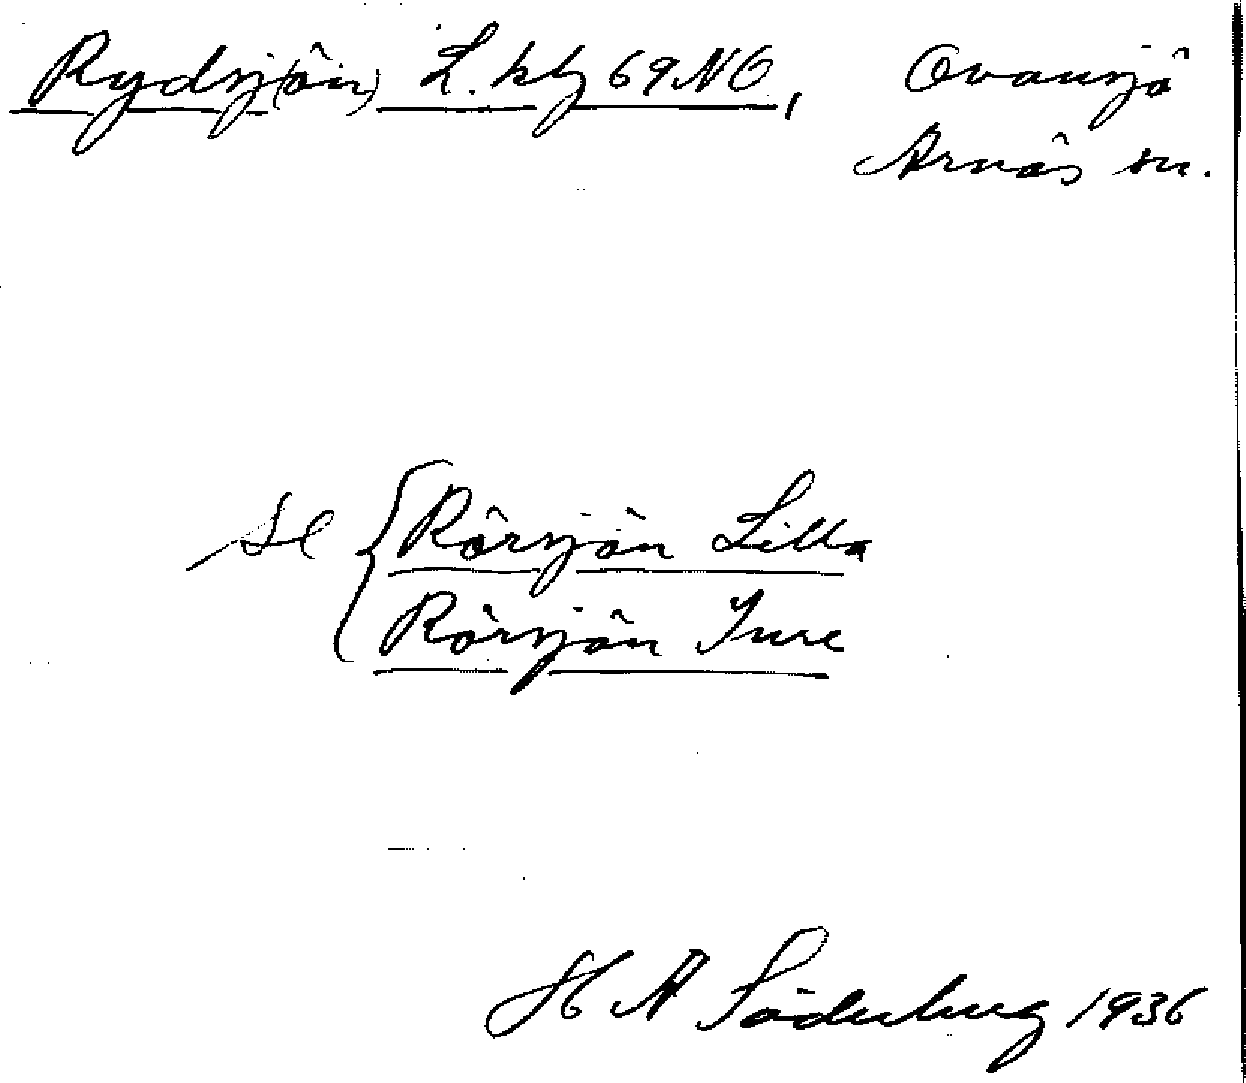 Rydsj(ön) L. kbl 69 NO, Ovansjö
Arnäs sn.
se { Rörsjön Lilla
Rörsjön Inre
H A Söderberg 1936